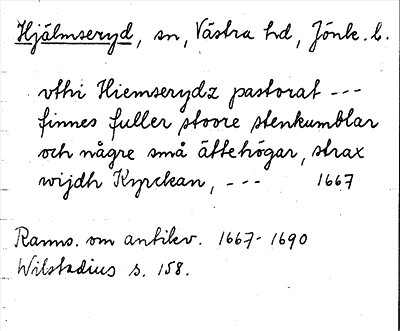 Hjälmseryd, sn, Västra hd, Jönk. l.
vthi Hiemserydz pastorat ---
finnes fuller stoore stenkumblar
och någre små ättehögar, strax
wijdh Kyrckan, --- 1667
Ranns. om antikv. 1667-1690
Wilstadius s. 158.